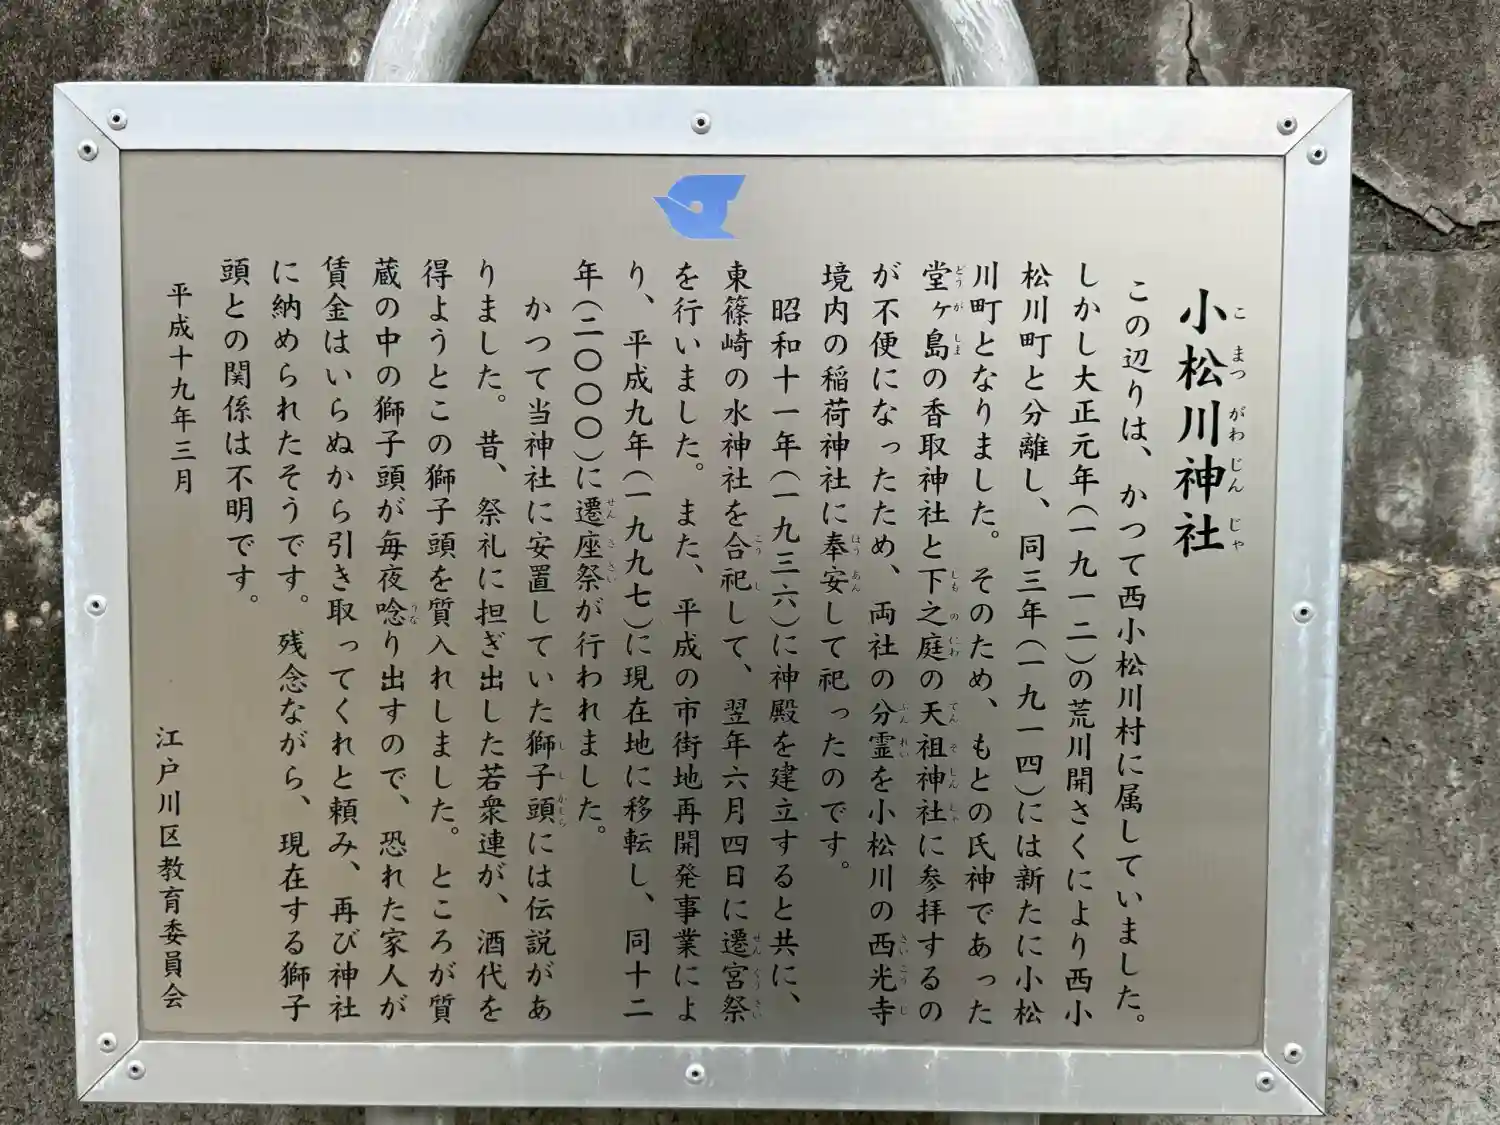 小松川神社
この辺りは、かつて西小松川村に属していました。
しかし大正元年(一九一二)の荒川開さくにより西小
松川町と分離し、同三年(一九一四)には新たに小松
川町となりました。そのため、もとの氏神であった
堂ヶ島の香取神社と下之庭の天祖神社に参拝するの
が不便になったため、両社の分霊を小松川の西光寺
境内の稲荷神社に奉安して祀ったのです。
昭和十一年(一九三六)に神殿を建立すると共に、
東篠崎の水神社を合祀して、翌年六月四日に遷宮祭
を行いました。また、平成の市街地再開発事業によ
り、平成九年(一九九七)に現在地に移転し、同十二
年(二〇〇〇)に遷座祭が行われました。
かつて当神社に安置していた獅子頭には伝説があ
りました。昔、祭礼に担ぎ出した若衆連が、酒代を
得ようとこの獅子頭を質入れしました。ところが質
蔵の中の獅子頭が毎夜唸り出すので、恐れた家人が
賃金はいらぬから引き取ってくれと頼み、再び神社
に納められたそうです。残念ながら、現在する獅子
頭との関係は不明です。
平成十九年三月
江戸川区教育委員会